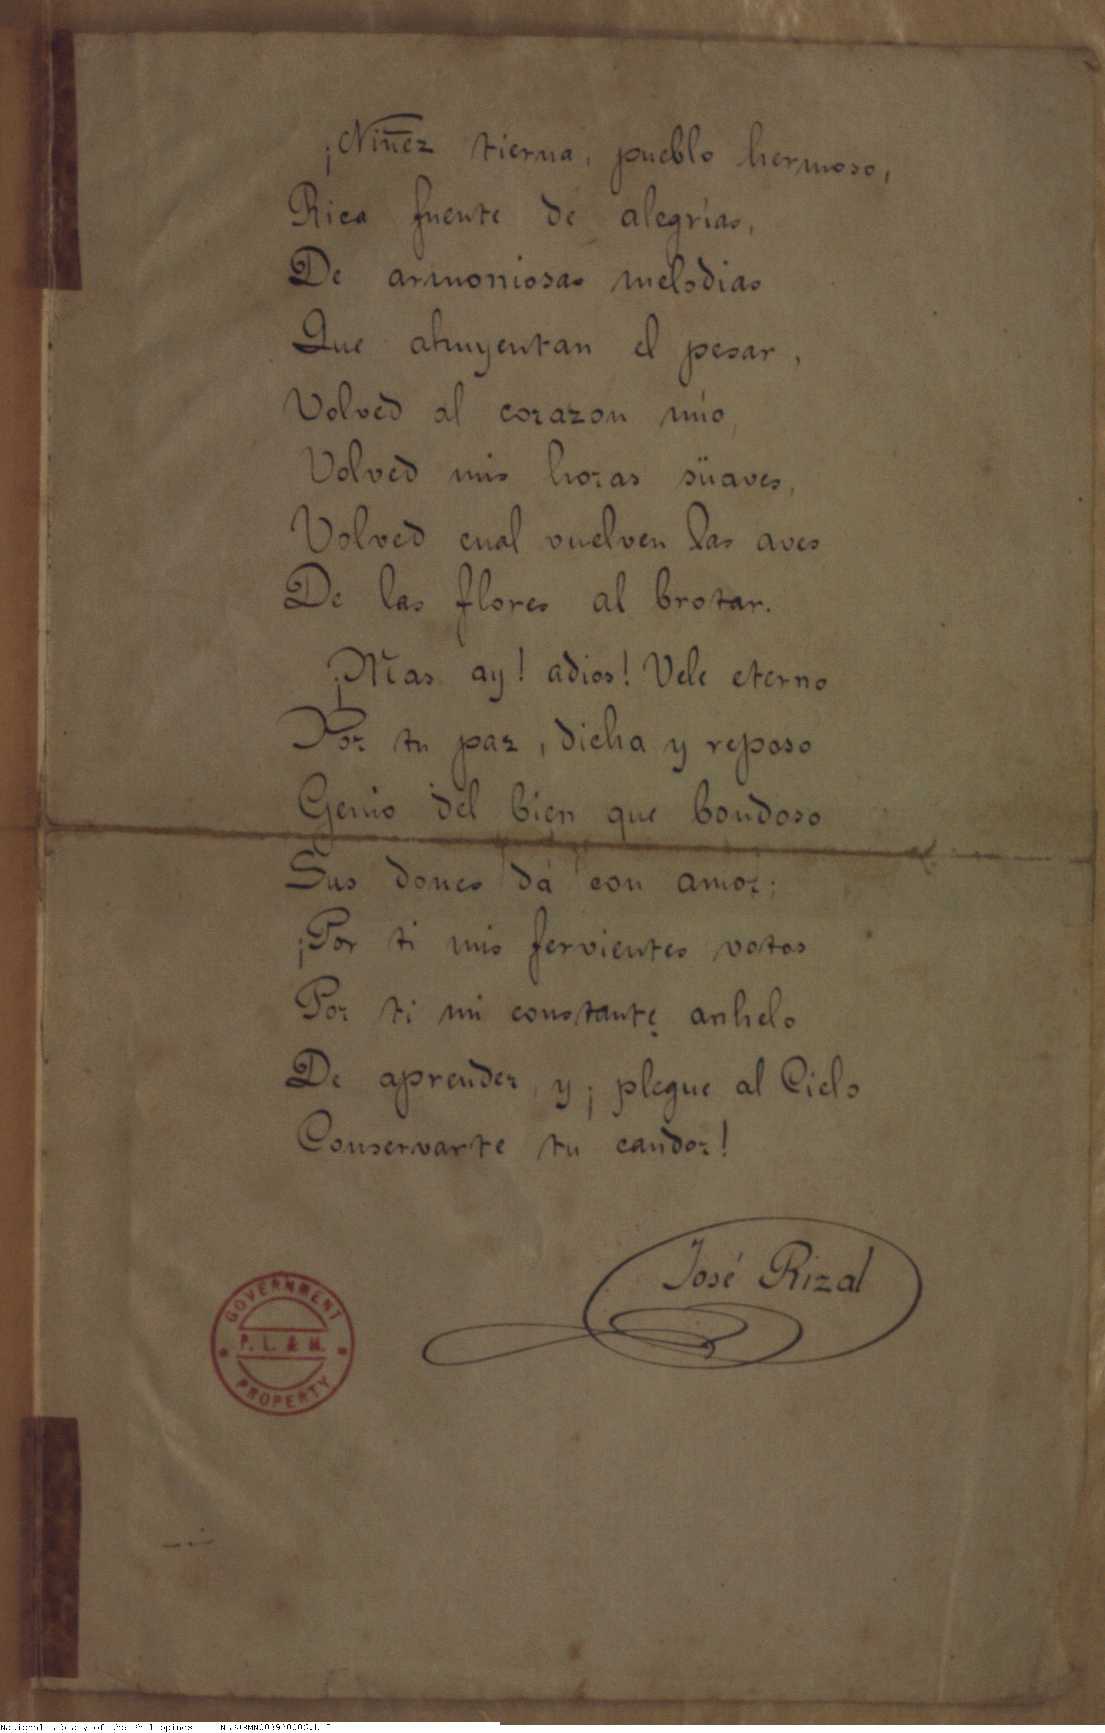 ¡Niñez tierna, pueblo hermoso,
Rica fuente de alegrías,
De armoniosas melodias
Que ahuyentan el pesar,
Volved al corazon mío,
Volved mis horas süaves,
Volved cual vuelven las aves
De las flores al brotar.
¡Mas ay! adios! Vele eterno
Por tu paz, dicha y reposo
Genio del bien que bondoso
Sus dones dá con amor;
¡Por ti mis fervientes votos
Por ti mi constante anhelo
De aprender, y ¡plegue al Cielo
Conservarte tu candor!
José Rizal
GOVERNMENT
P. L. & M.
PROPERTY
National Library of the Philippines